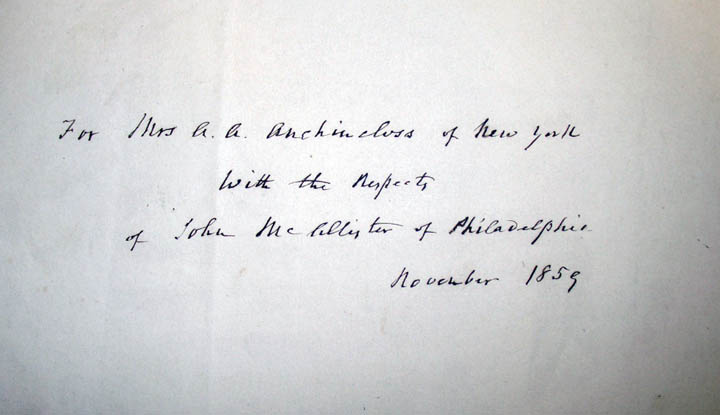 For Mrs A. A. Auchincloss of New York
With the Respects
of John McAllister of Philadelphia
November 1859